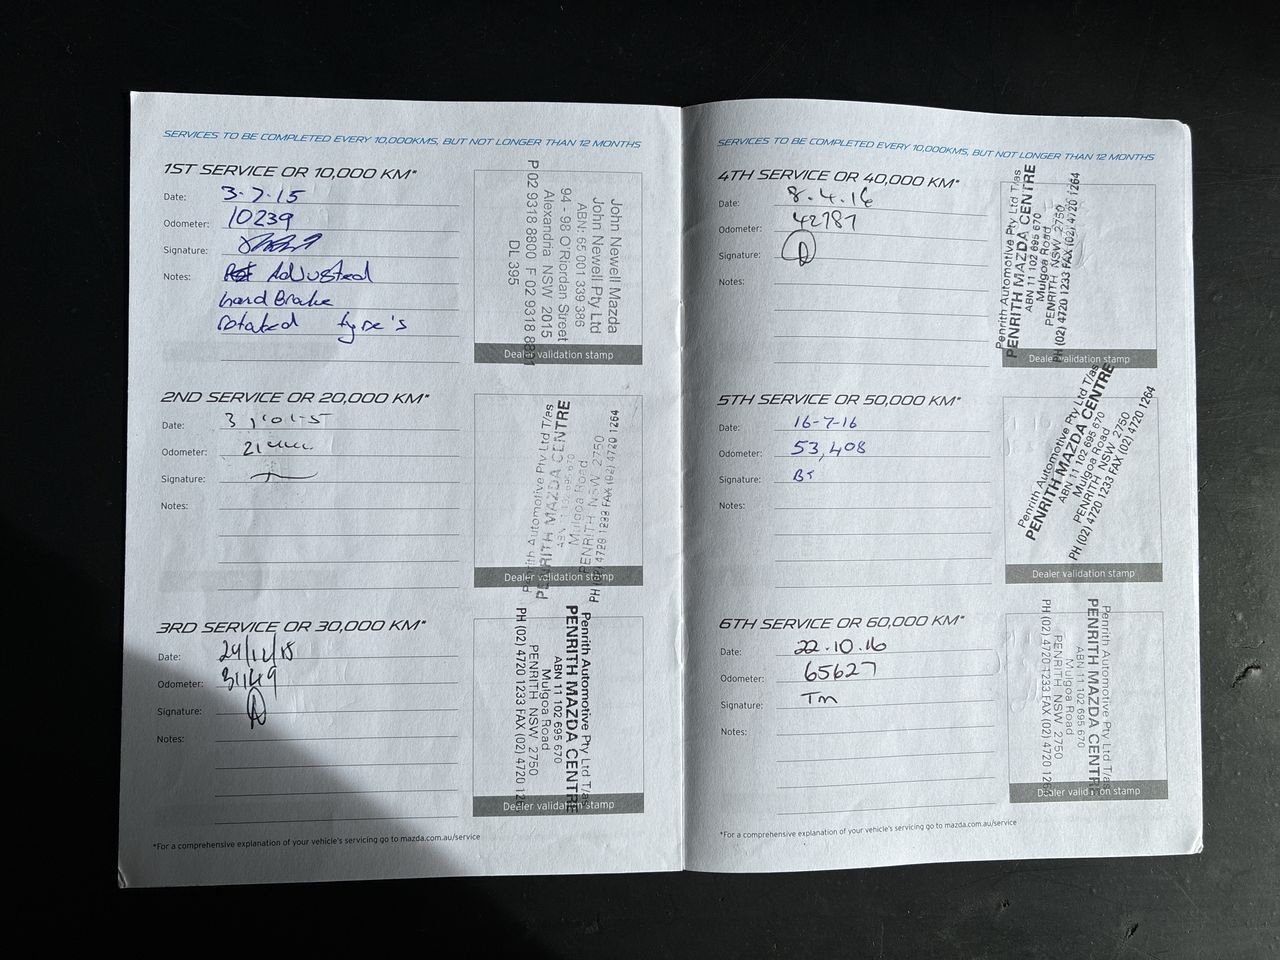 SERVICES TO BE COMPLETED EVERY 10,000KMS, BUT NOT LONGER THAN 12 MONTHS
1ST SERVICE OR 10,000 KM*
Date: 3-7-15
Odometer: 10239
Signature:
Notes: Adjusted
hand Brake
rotated tyre's
John Newell Mazda
John Newell Pty Ltd
ABN: 65 001 339 386
94 - 98 O'Riordan Street
Alexandria NSW 2015
P 02 9318 8800 F 02 9318
DL 395
Dealer validation stamp
2ND SERVICE OR 20,000 KM*
Date:
Odometer:
Signature:
Notes:
Penrith Automotive Pty Ltd T/as
PENRITH MAZDA CENTRE
Mulgoa Road
PENRITH NSW 2750
PH (02) 4720 1233 FAX (02) 4720 1264
Dealer validation stamp
3RD SERVICE OR 30,000 KM*
Date: 29/12/15
Odometer: 31149
Signature:
Notes:
Penrith Automotive Pty Ltd T/as
PENRITH MAZDA CENTRE
ABN 11 102 695 670
Mulgoa Road
PENRITH NSW 2750
PH (02) 4720 1233 FAX (02) 4720
Dealer validation stamp
*For a comprehensive explanation of your vehicle's servicing go to mazda.com.au/service
SERVICES TO BE COMPLETED EVERY 10,000KMS, BUT NOT LONGER THAN 12 MONTHS
4TH SERVICE OR 40,000 KM*
Date: 8.4.16
Odometer: 42787
Signature:
Notes:
Penrith Automotive Pty Ltd T/as
PENRITH MAZDA CENTRE
ABN 11 102 695 670
Mulgoa Road
PENRITH NSW 2750
PH (02) 4720 1233 FAX (02) 4720 1264
Dealer validation stamp
5TH SERVICE OR 50,000 KM*
Date: 16-7-16
Odometer: 53,408
Signature:
Notes:
Penrith Automotive Pty Ltd T/as
PENRITH MAZDA CENTRE
ABN 11 102 695 670
Mulgoa Road
PENRITH NSW 2750
PH (02) 4720 1233 FAX (02) 4720 1264
Dealer validation stamp
6TH SERVICE OR 60,000 KM*
Date: 22.10.16
Odometer: 65627
Signature: Tm
Notes:
Penrith Automotive Pty Ltd T/as
PENRITH MAZDA CENTRE
ABN 11 102 695 670
Mulgoa Road
PENRITH NSW 2750
PH (02) 4720 1233 FAX (02) 4720
Dealer validation stamp
*For a comprehensive explanation of your vehicle's servicing go to mazda.com.au/service